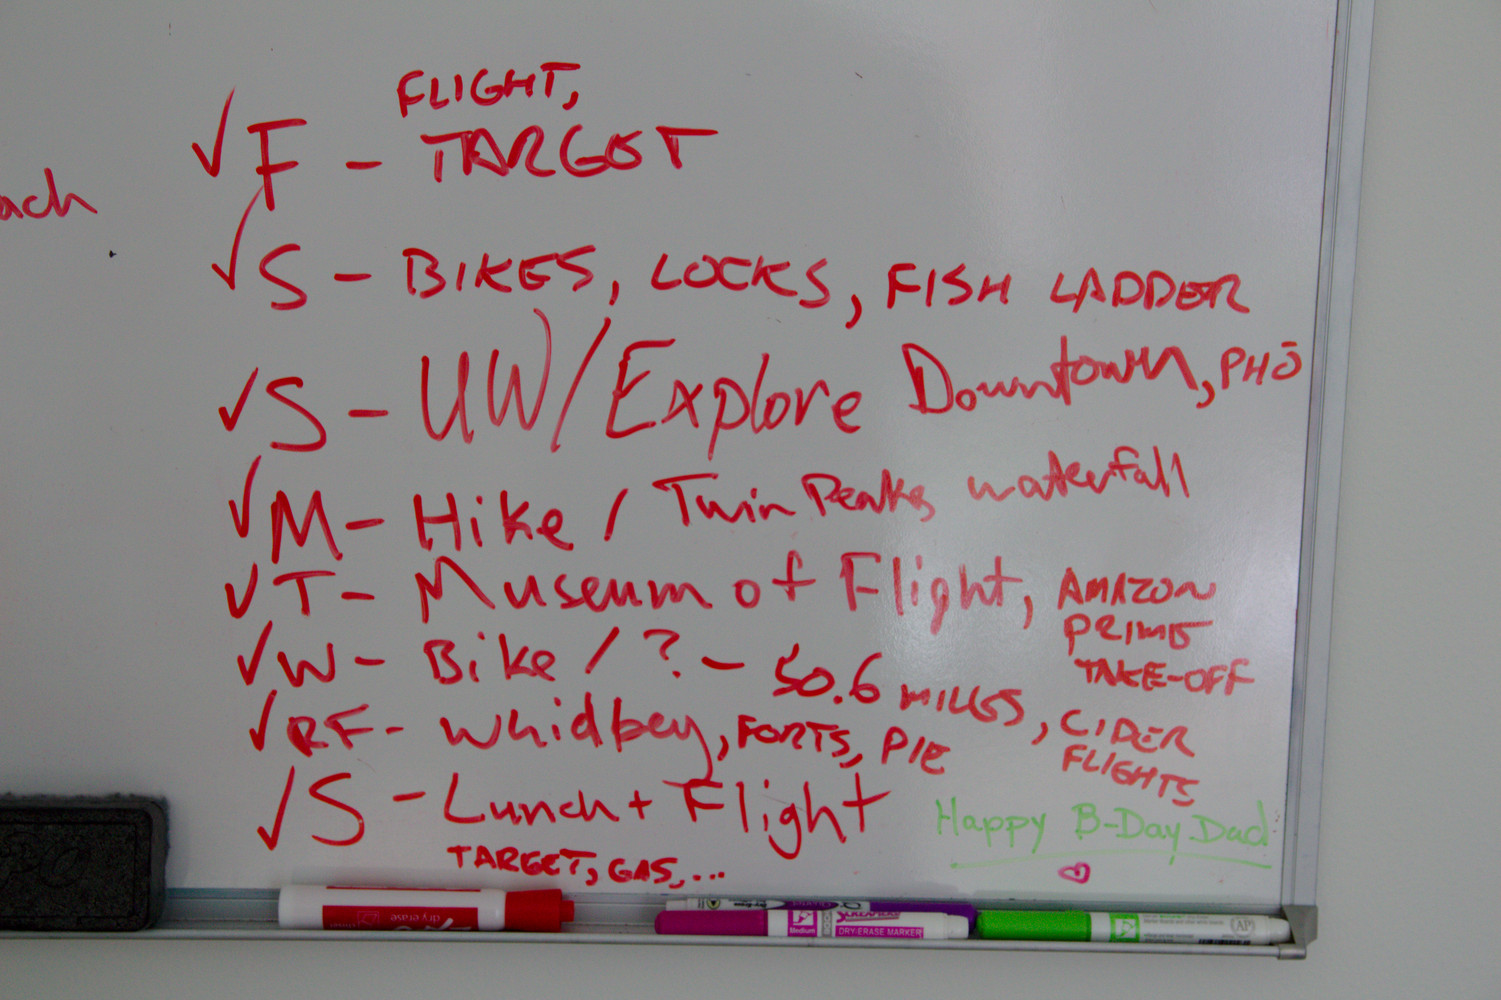 FLIGHT,
✓ F - TARGET
ach
✓ S - BIKES, LOCKS, FISH LADDER
✓ S - UW/Explore Downtown, PHŌ
✓ M - Hike / Twin Peaks waterfall
✓ T - Museum of Flight, AMAZON
PRIME
TAKE-OFF
✓ W - Bike / ? - 50.6 MILES, CIDER
FLIGHTS
✓ RF - Whidbey, FORTS, PIE
✓ S - Lunch + Flight
TARGET, GAS, ...
Happy B-Day Dad
dry erase
Medium
DRY-ERASE MARKER
AP